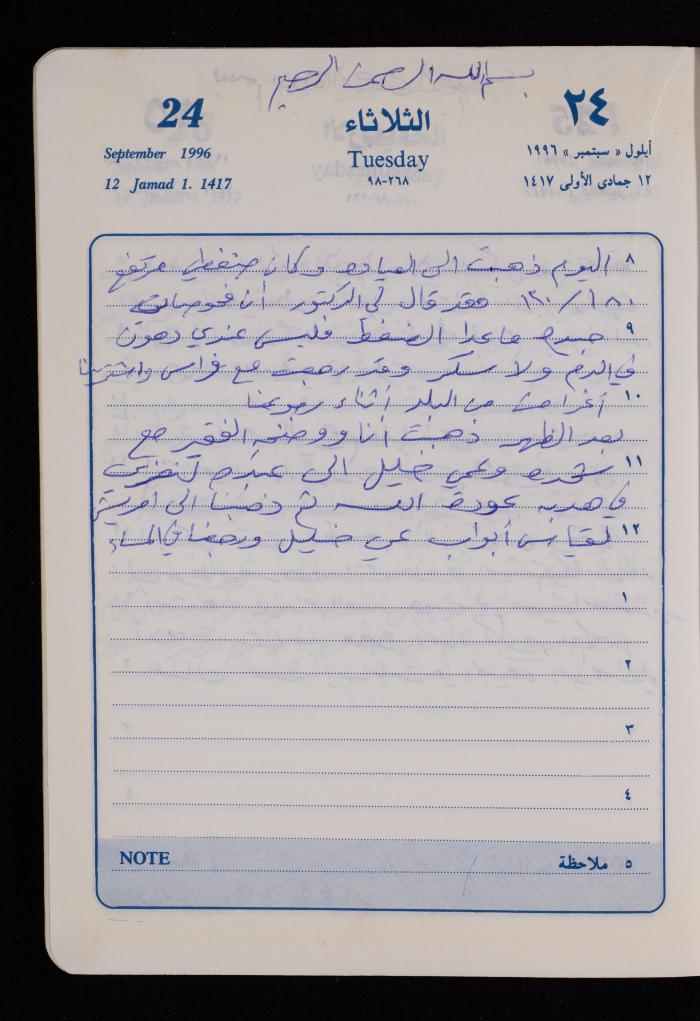 بسم الله الرحمن الرحيم
24
الثلاثاء
٢٤
September 1996
Tuesday
أيلول « سبتمبر » ١٩٩٦
12 Jamad 1. 1417
٢٦٨-٩٨
١٢ جمادى الأولى ١٤١٧
٨ اليوم ذهبت الى العياده وكان ضغطي مرتفع
١٨٠/١٢٠ فقد قال لي الدكتور أن فحوصاتي
٩ جيده ماعدا الضغط فليس عندي دهون
في الدم ولا سكر وقد رجعت مع فراس واشترينا
١٠ أغراض من البلد أثناء رجوعنا
بعد الظهر ذهبت أنا ووضحه الفقير مع
١١ شحده وعمي خليل الى عبده لنعزي
في هديه عودة الله ثم ذهبنا الى
١٢ لقياس أبواب عمي خليل ورجعنا في المساء
١
٢
٣
٤
NOTE
٥ ملاحظة